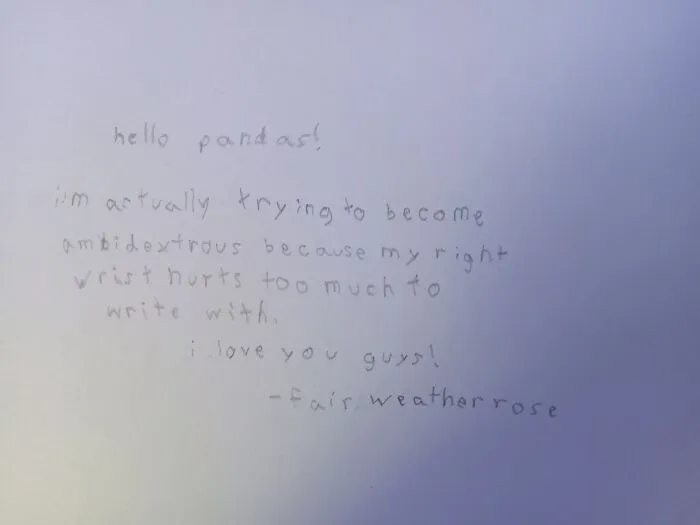 hello pandas!
i'm actually trying to become
ambidextrous because my right
wrist hurts too much to
write with.
i love you guys!
- fair. weather rose